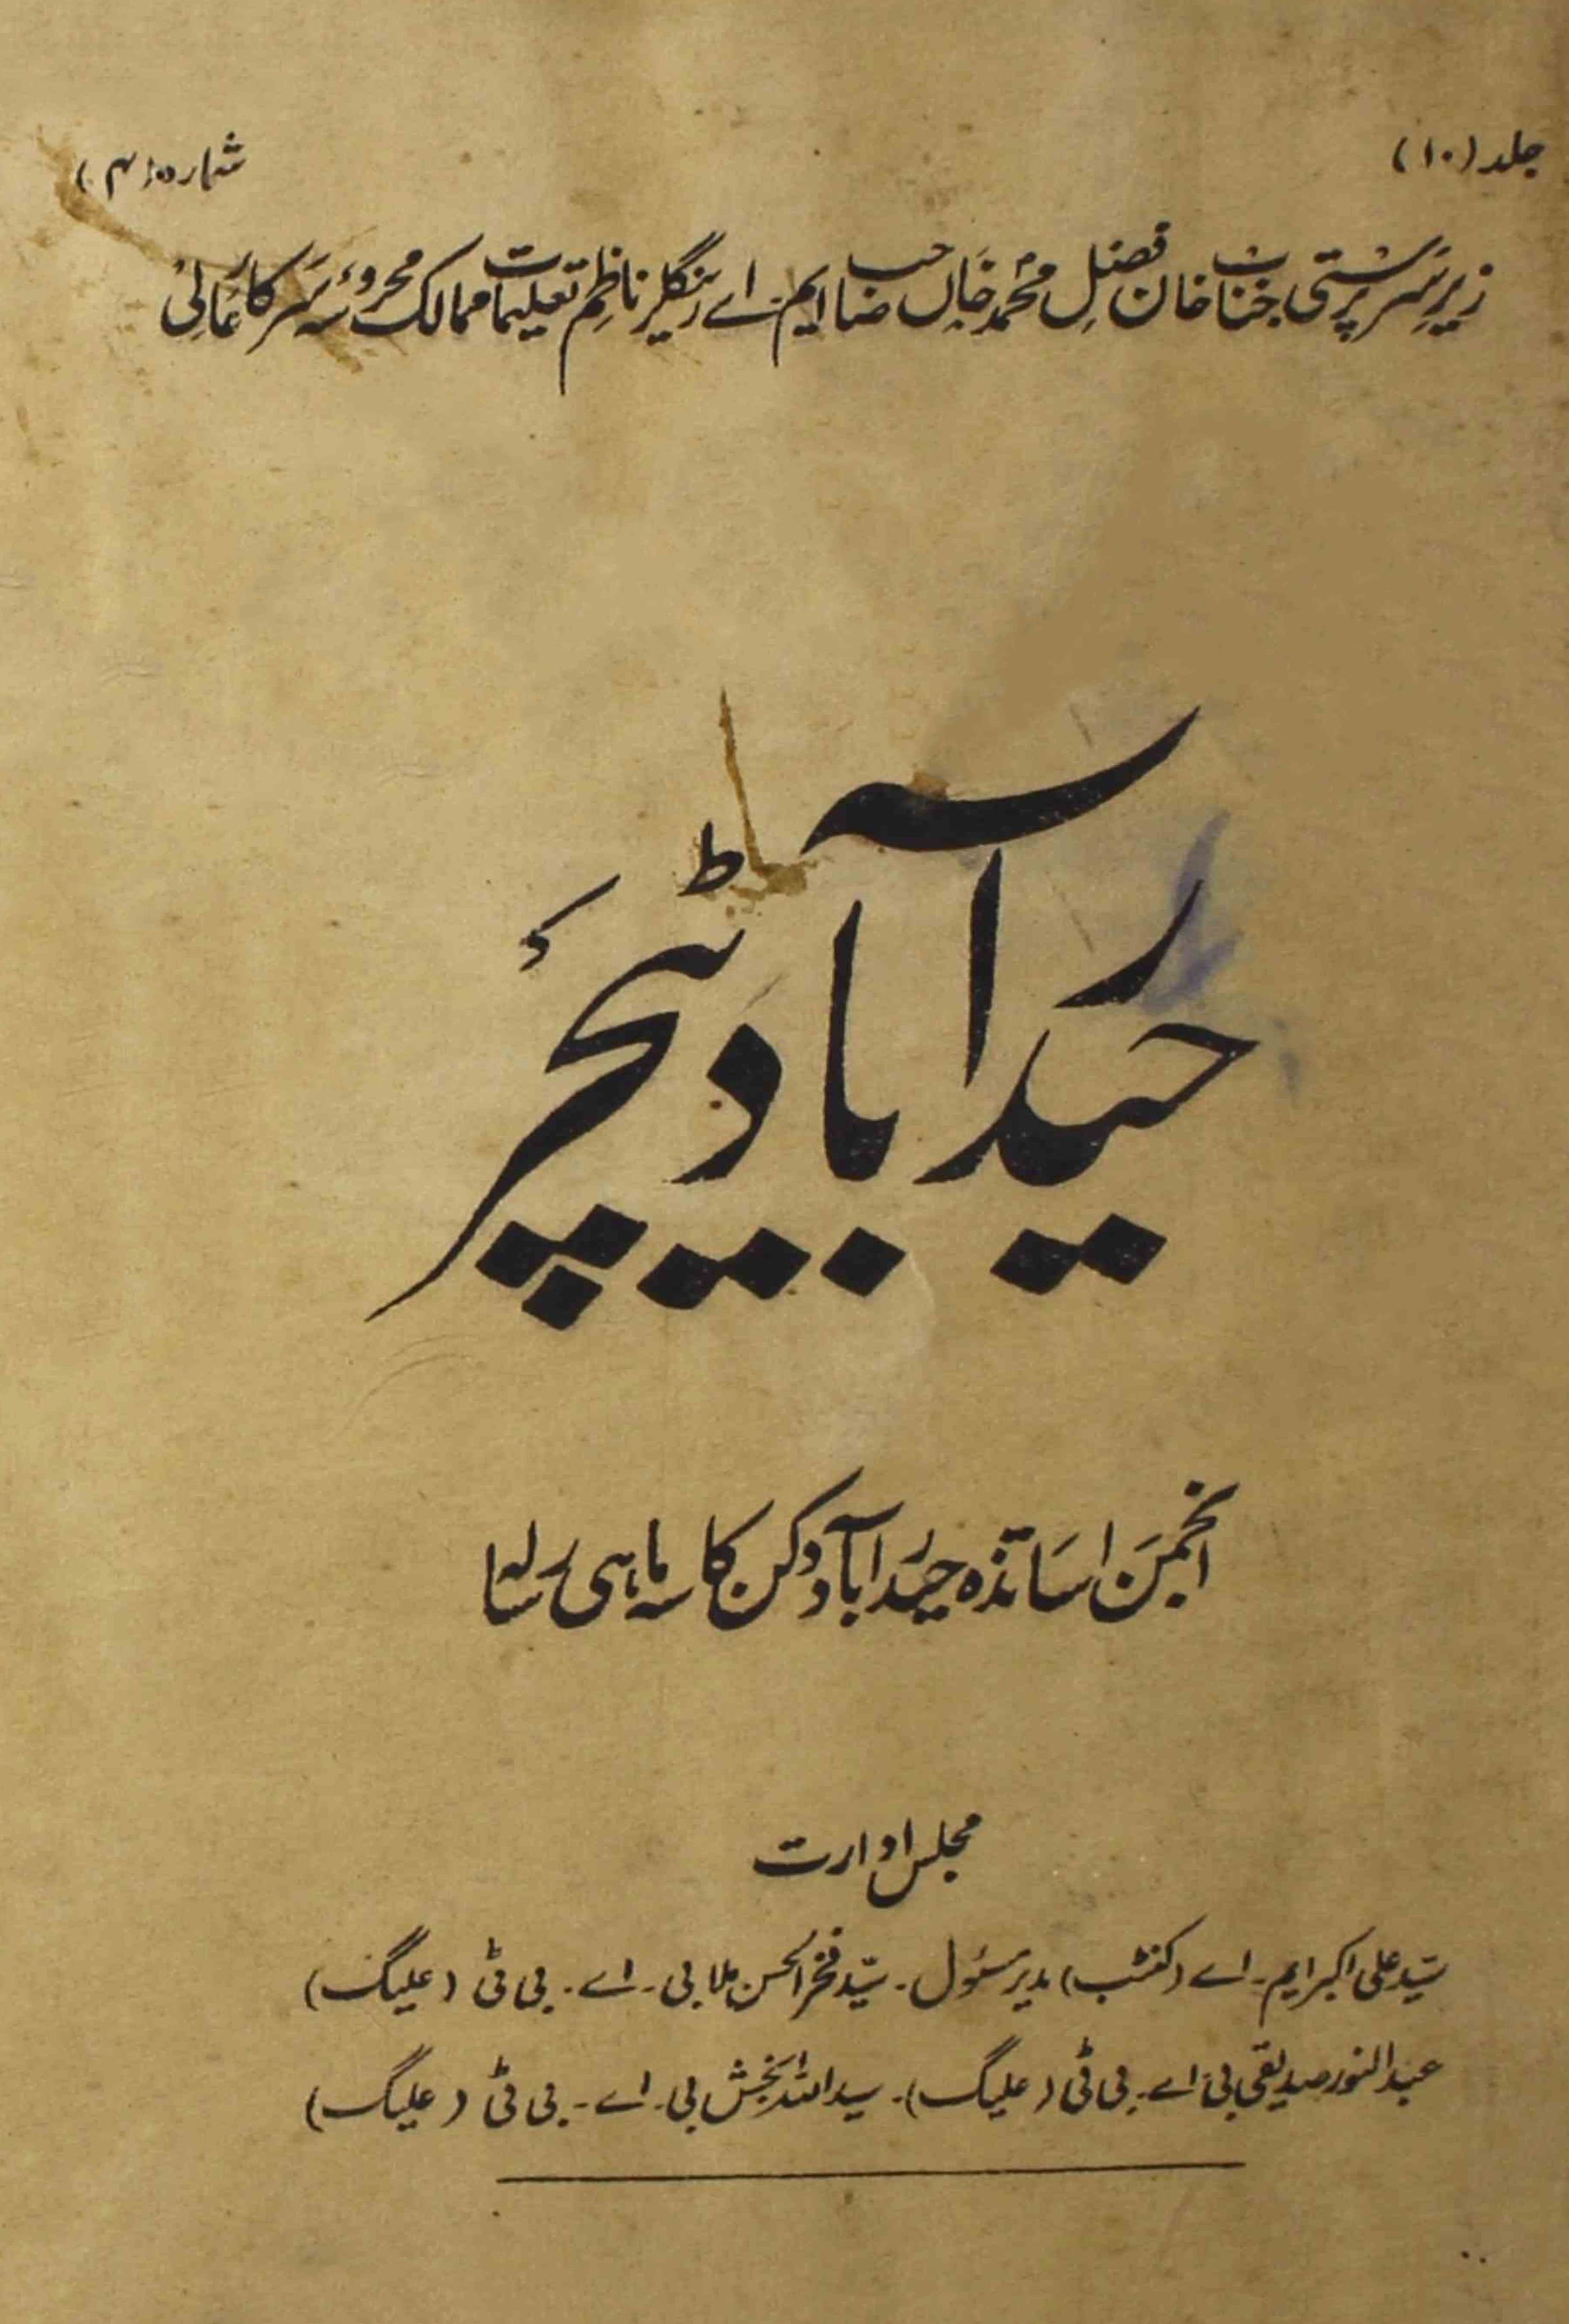 جلد (۱۰)
شمارہ (۴)
زیر سرپرستی جناب خان فضل محمد خاں صاحب ایم۔ اے رینگلر ناظم تعلیمات ممالک محروسہ سرکار عالی
حیدرآباد ٹیچر
انجمن اساتذہ حیدرآباد دکن کا سہ ماہی رسالہ
مجلس ادارت
سید علی اکبر ایم۔ اے (کنٹب) مدیر مسئول۔ سید فخر الحسن ملا بی۔ اے۔ بی ٹی (علیگ)
عبد النور صدیقی بی اے۔ بی ٹی (علیگ)۔ سید اللہ بخش بی۔ اے۔ بی ٹی (علیگ)